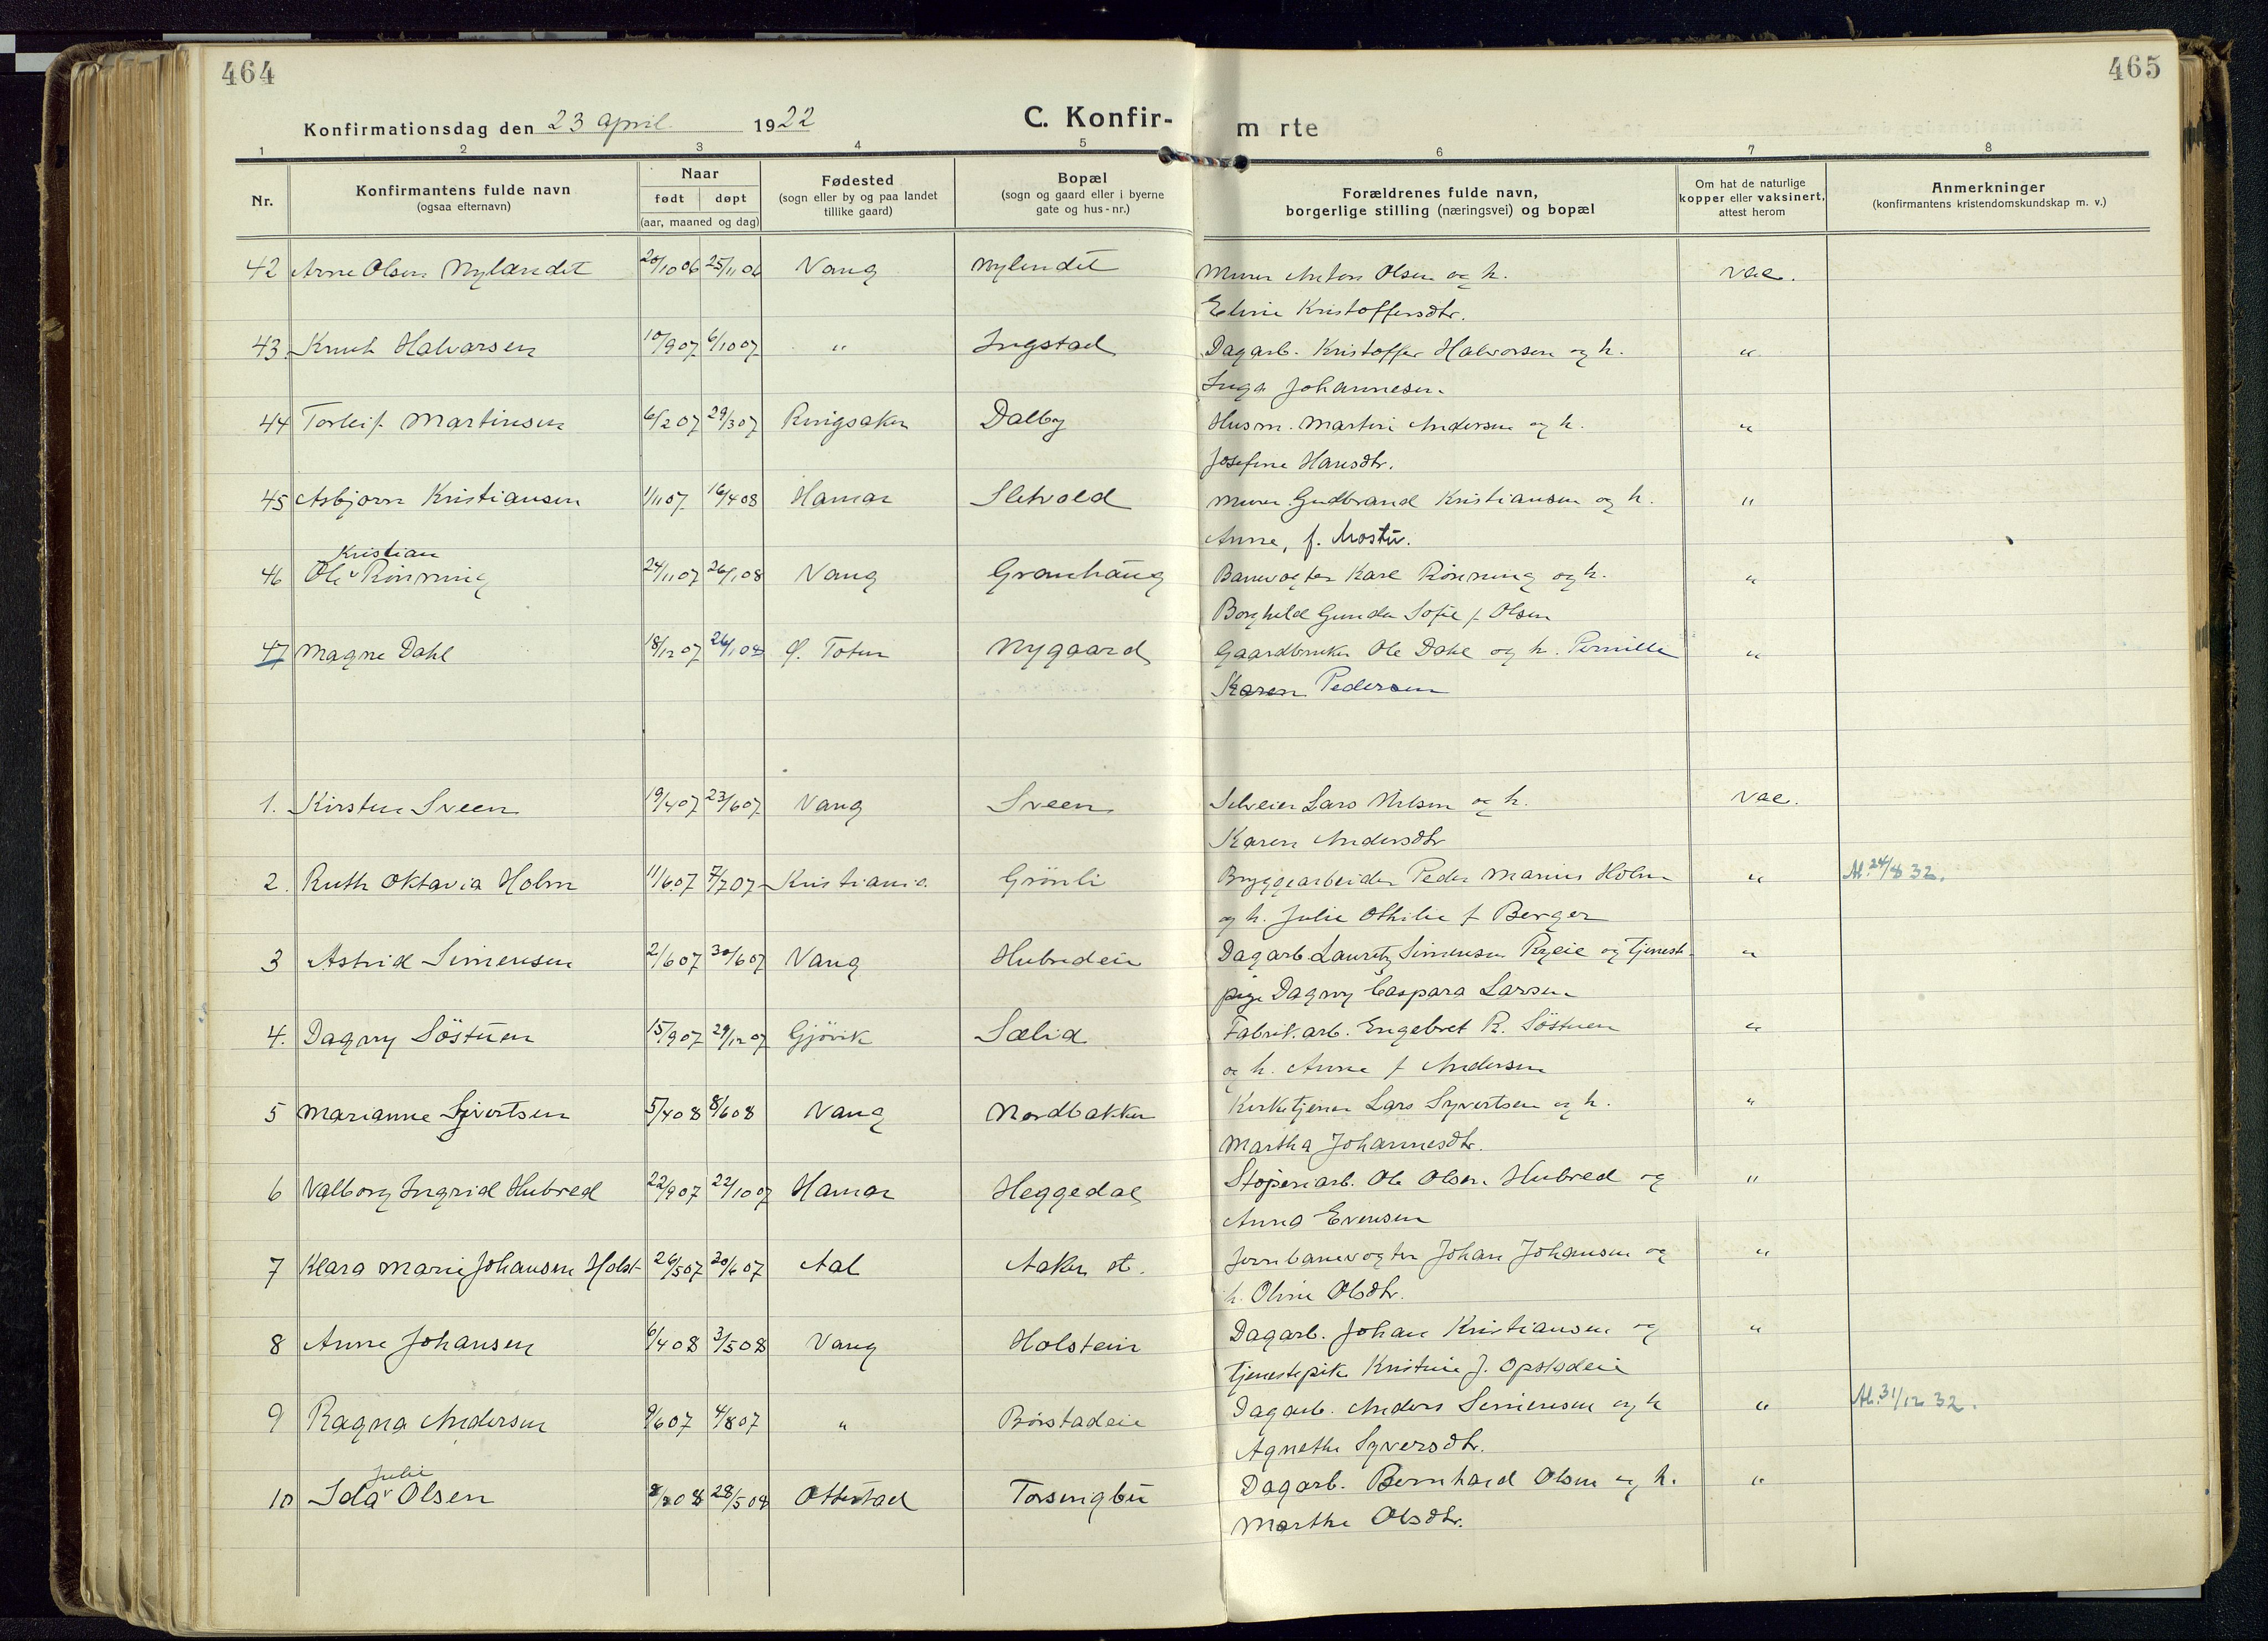 464
465
Konfirmationsdag den 23 april 1922
C. Konfir- m rte
1 2 3 4 5 6 7 8
Nr.
Konfirmantens fulde navn
(ogsaa efternavn)
Naar
født døpt
(aar, maaned og dag)
Fødested
(sogn eller by og paa landet
tillike gaard)
Bopæl
(sogn og gaard eller i byerne
gate og hus-nr.)
Forældrenes fulde navn,
borgerlige stilling (næringsvei) og bopæl
Om hat de naturlige
kopper eller vaksinert,
attest herom
Anmerkninger
(konfirmantens kristendomskundskap m. v.)
42 Arne Olsen Nylændet 20/10 06 25/11 06 Vang Nylendet Murer Anton Olsen og h. vac.
Eline Kristoffersdtr.
43 Knut Halvorsen 10/9 07 6/10 07 " Ingstad Dagarb. Kristoffer Halvorsen og h. "
Inga Johannesen
44 Torleif Martinsen 6/2 07 29/3 07 Ringsaker Dalby Husm. Martin Andersen og h. "
Josefine Hansdtr.
45 Asbjørn Kristiansen 1/11 07 16/4 08 Hamar Sletvold Murer Gudbrand Kristiansen og h. "
Anne, f. Mostu.
Kristian
46 Ole Rønning 24/11 07 26/1 08 Vang Granhaug Banevogter Karl Rønning og h. "
Borghild Gunda Sofie f Olsen
47 Magne Dahl 18/12 07 26/1 08 Ø. Toten Nygaard Gaardbruker Ole Dahl og h. Pernille "
Karen Pedersen
1. Kirsten Sveen 19/4 07 23/6 07 Vang Sveen Selveier Lars Nilsen og h. vac.
Karen Andersdtr
2. Ruth Oktavia Holm 11/6 07 7/7 07 Kristiania Grönli Bryggearbeider Peder Marius Holm " At. 24/8 32.
og h. Julie Othilie f Berger
3 Astrid Simensen 2/6 07 30/6 07 Vang Hubredeie Dagarb. Lauritz Simensen Ryeie og tjeneste- "
pige Dagny Caspara Larsen
4. Dagny Söstuen 15/9 07 29/12 07 Gjövik Sælid Fabrik.arb. Engebret R. Söstuen "
og h. Anne f Andersen
5 Marianne Syvertsen 5/4 08 8/6 08 Vang Nordbakken Kirketjener Lars Syvertsen og h. "
Martha Johannesdtr.
6 Valborg Ingrid Hubred 22/9 07 22/10 07 Hamar Heggedal Støperiarb. Ole Olsen Hubred og "
Anna Evensen
7 Klara Marie Johansen Holst 26/5 07 30/6 07 Aal Aaker st. Jernbanevogter Johan Johansen og "
h. Oline Olsdtr.
8 Anne Johansen 6/4 08 3/5 08 Vang Holstein Dagarb. Johan Kristiansen og "
tjenestepike Kristine J. Opstadeie
9 Ragna Andersen 9/6 07 4/8 07 " Börstadeie Dagarb. Anders Simensen og h " At. 31/12 32.
Agnethe Syversdtr.
Julie
10 Ida Olsen 28/5 08 Ottestad Dagarb. Bernhard Olsen og h. "
Marthe Olsdtr.